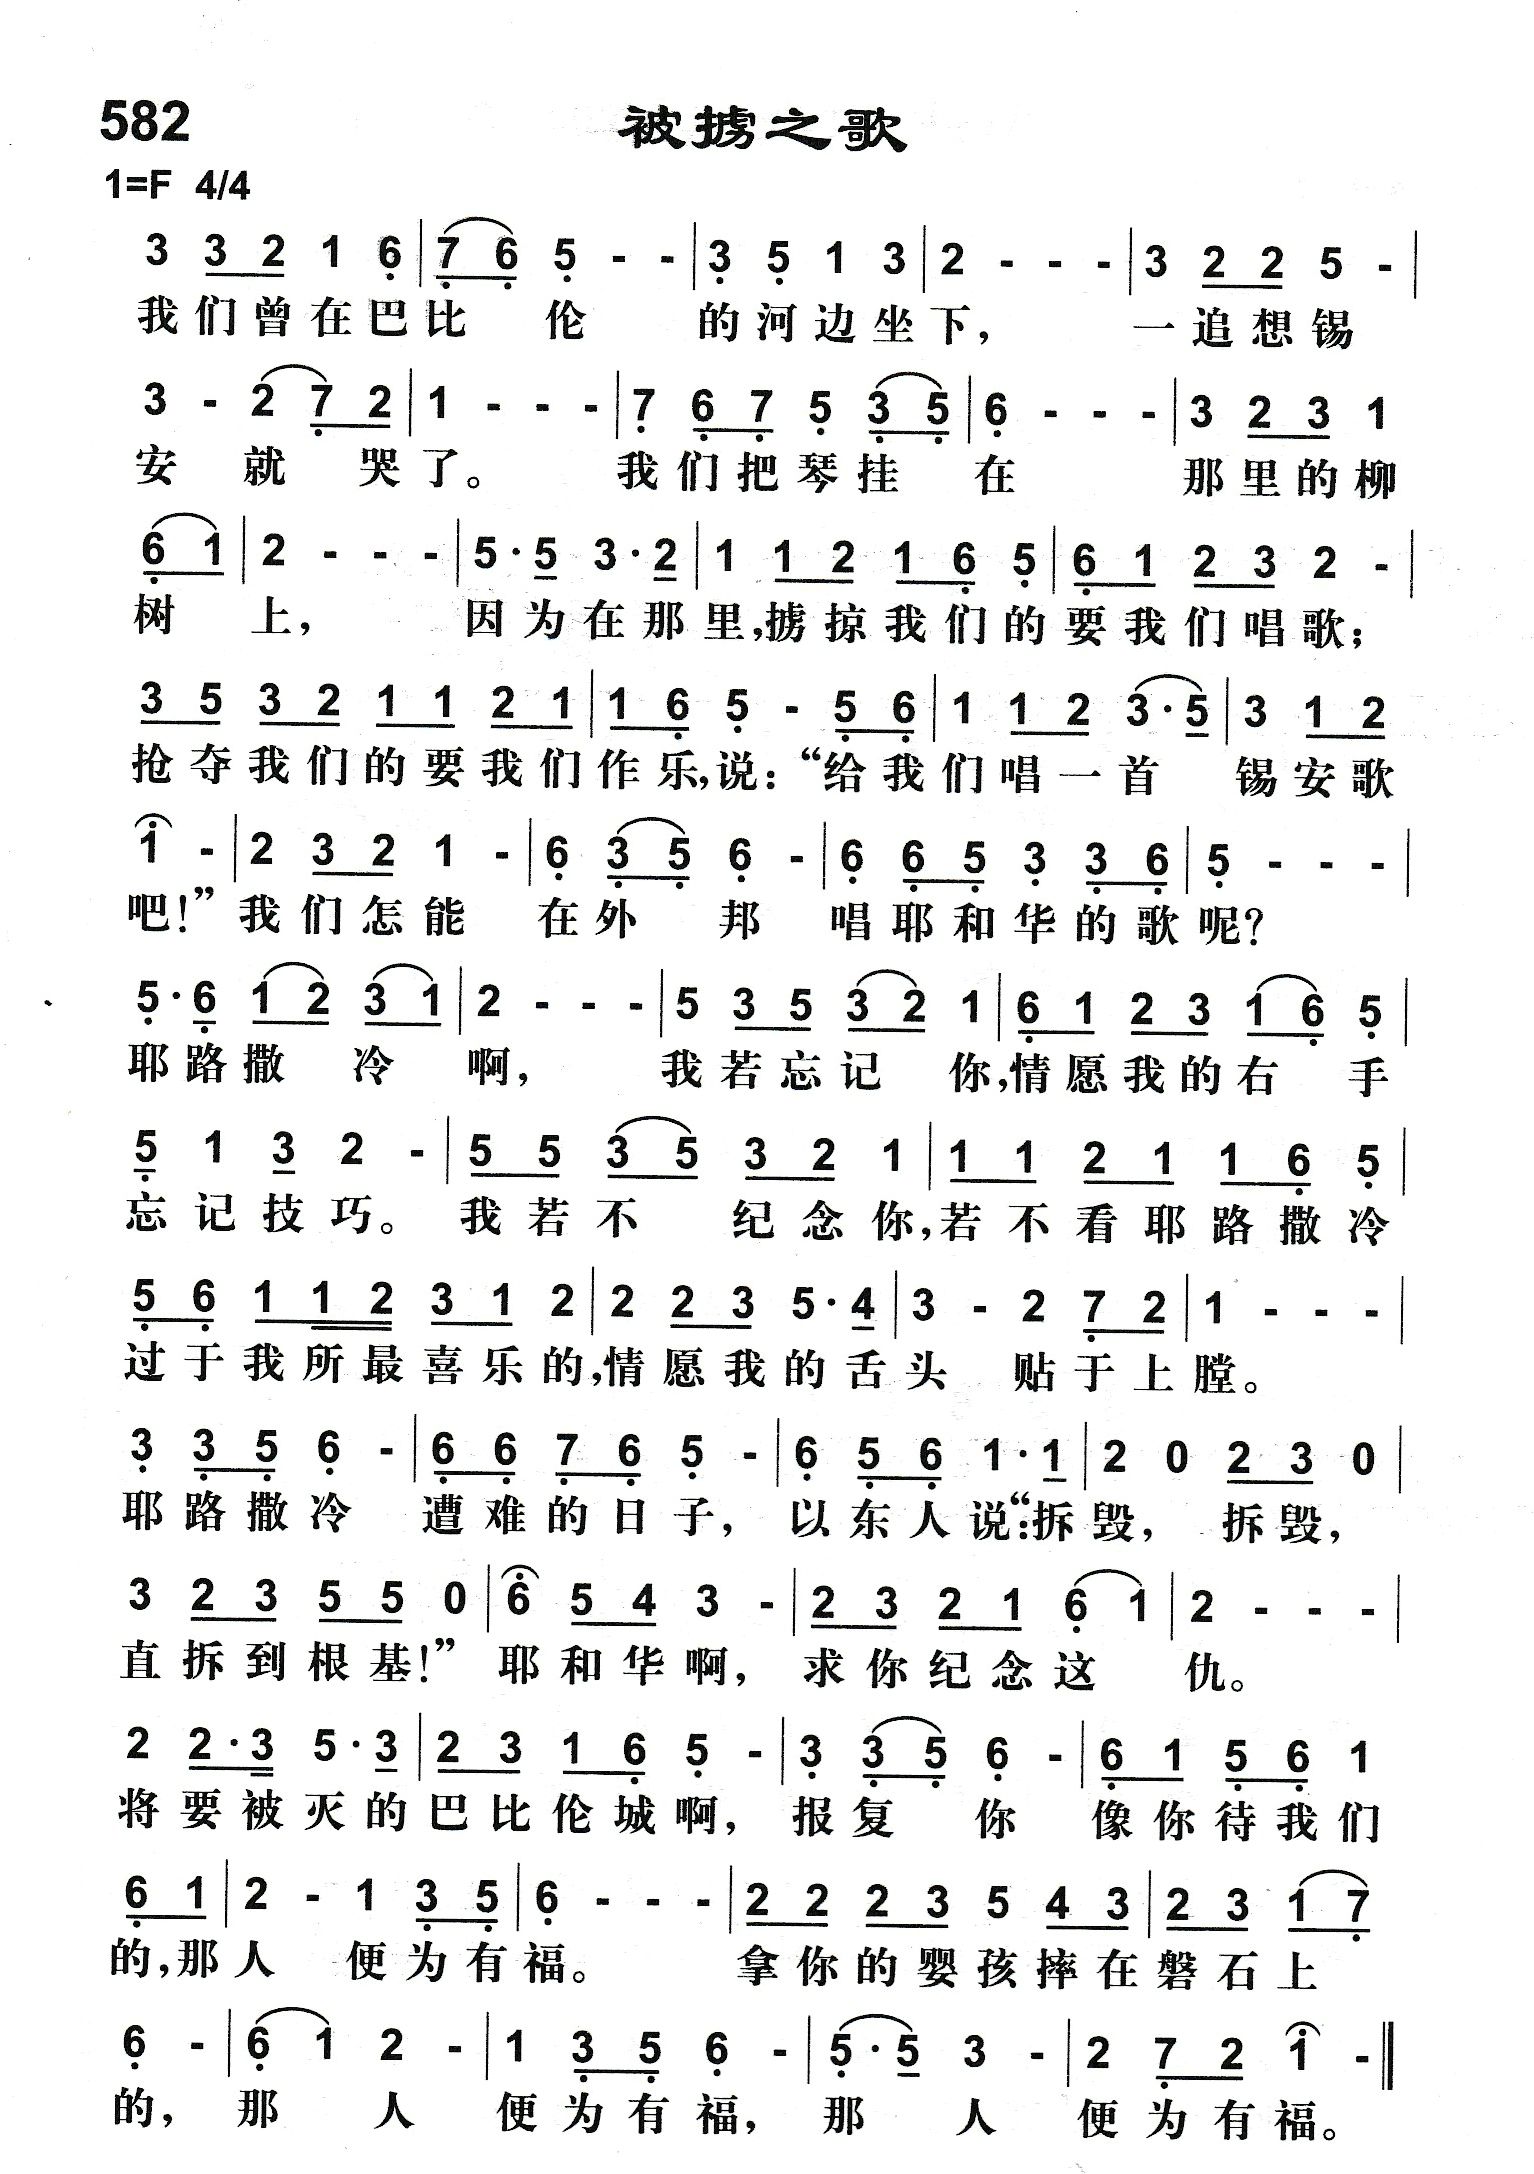 582 被掳之歌
1=F 4/4
3 3 2 1 6 | 7 6 5 - - | 3 5 1 3 | 2 - - - | 3 2 2 5 - |
我们曾在巴比伦 的河边坐下， 一追想锡
3 - 2 7 2 | 1 - - - | 7 6 7 5 3 5 | 6 - - - | 3 2 3 1
安就哭了。 我们把琴挂在 那里的柳
6 1 | 2 - - - | 5·5 3·2 | 1 1 2 1 6 5 | 6 1 2 3 2 - |
树上， 因为在那里，掳掠我们的要我们唱歌；
3 5 3 2 1 1 2 1 | 1 6 5 - 5 6 | 1 1 2 3·5 | 3 1 2
抢夺我们的要我们作乐，说：“给我们唱一首 锡安歌
1 - | 2 3 2 1 - | 6 3 5 6 - | 6 6 5 3 3 6 | 5 - - - |
吧！”我们怎能 在外邦 唱耶和华的歌呢？
5·6 1 2 3 1 | 2 - - - | 5 3 5 3 2 1 | 6 1 2 3 1 6 5 |
耶路撒冷啊， 我若忘记你，情愿我的右手
5 1 3 2 - | 5 5 3 5 3 2 1 | 1 1 2 1 1 6 5 |
忘记技巧。 我若不纪念你，若不看耶路撒冷
5 6 1 1 2 3 1 2 | 2 2 3 5·4 | 3 - 2 7 2 | 1 - - - |
过于我所最喜乐的，情愿我的舌头 贴于上膛。
3 3 5 6 - | 6 6 7 6 5 - | 6 5 6 1·1 | 2 0 2 3 0 |
耶路撒冷 遭难的日子， 以东人说：“拆毁， 拆毁，
3 2 3 5 5 0 | 6 5 4 3 - | 2 3 2 1 6 1 | 2 - - - |
直拆到根基！” 耶和华啊， 求你纪念这仇。
2 2·3 5·3 | 2 3 1 6 5 - | 3 3 5 6 - | 6 1 5 6 1
将要被灭的巴比伦城啊， 报复你 像你待我们
6 1 | 2 - 1 3 5 | 6 - - - | 2 2 2 3 5 4 3 | 2 3 1 7
的，那人 便为有福。 拿你的婴孩摔在磐石上
6 - | 6 1 2 - | 1 3 5 6 - | 5·5 3 - | 2 7 2 1 - ‖
的， 那人 便为有福， 那人 便为有福。